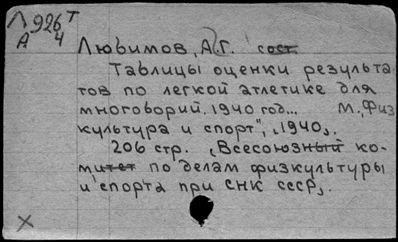 Л 926 Т
А 4
Любимов, А. Г. сост.
Таблицы оценки результа
тов по легкой атлетике для
многоворий. 1940 год... М., „Физ
культура и спорт", [1940].
206 стр. [Всесоюзный ко-
митет по делам физкультуры
и спорта при СНК СССР].
X